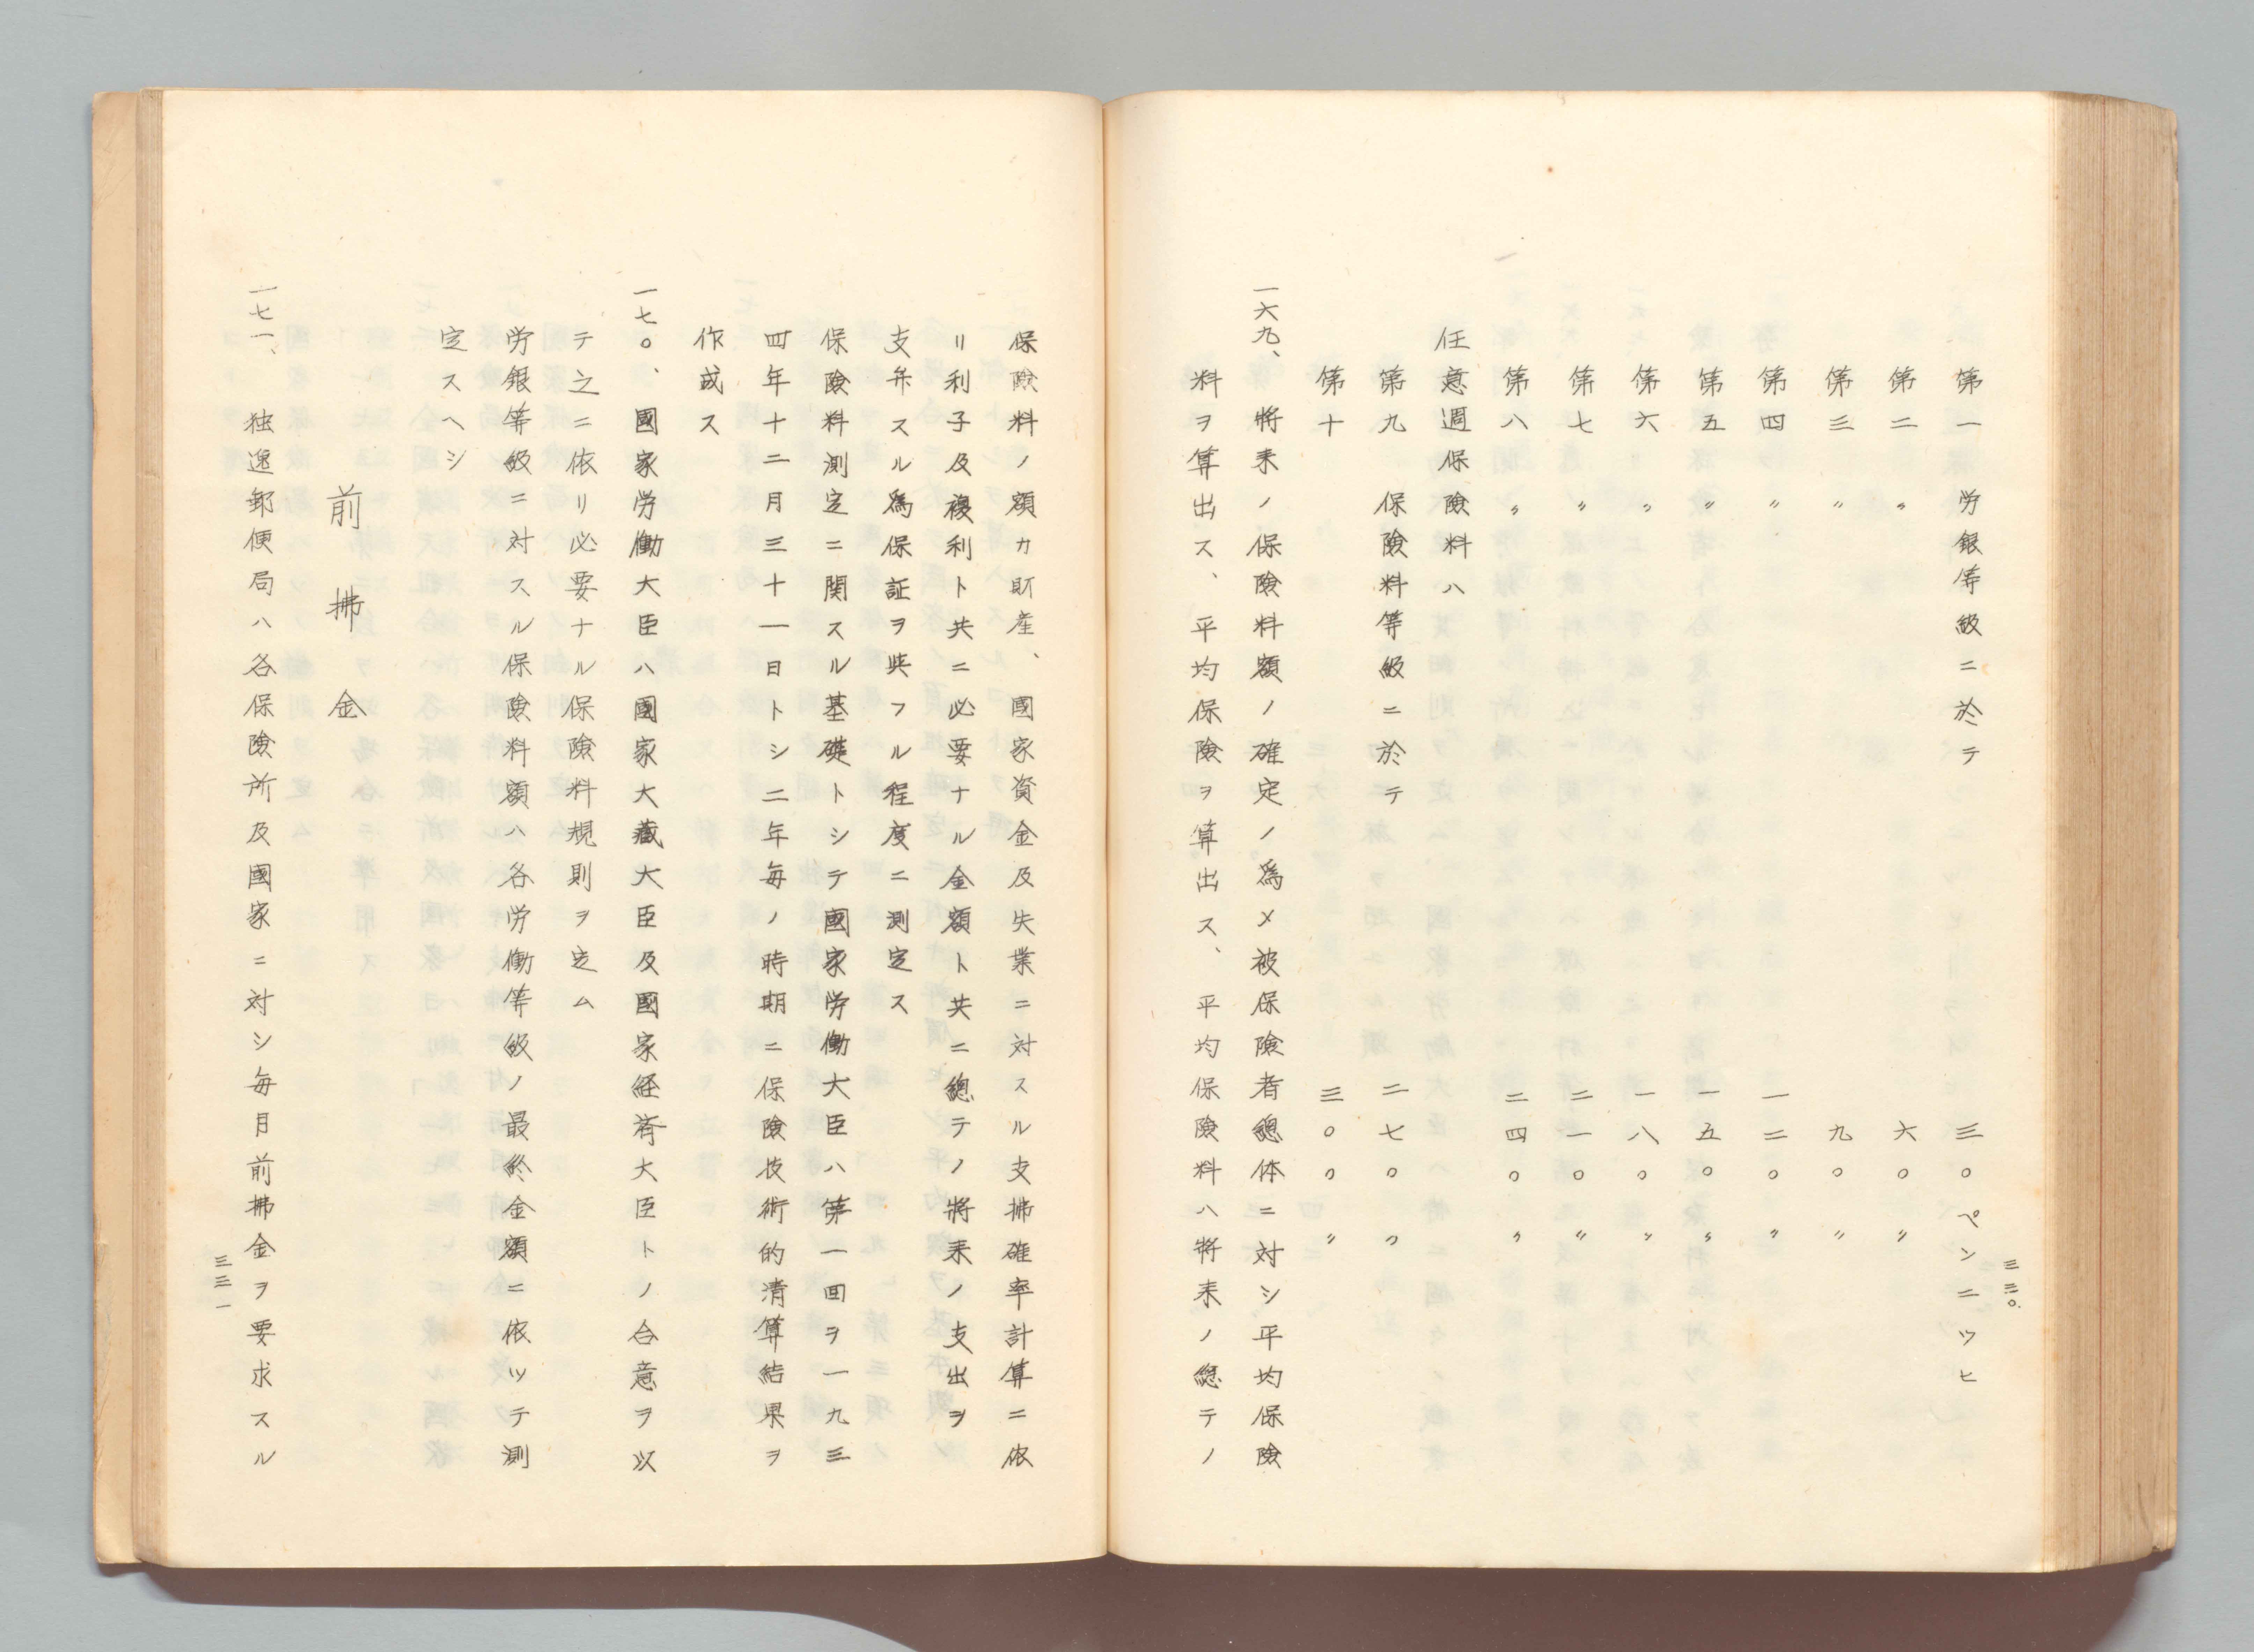 三三〇.
第一労銀等級ニ於テ 三〇ペンニツヒ
第二 〃 六〇 〃
第三 九〇 〃
第四 〃 一二〇 〃
第五 〃 一五〇 〃
第六 〃 一八〇 〃
第七 〃 二一〇 〃
第八 〃 二四〇 〃
任意週保険料ハ
第九 保険料等級ニ於テ 二七〇 〃
第十 三〇〇 〃
一六九、将来ノ保険料額ノ確定ノ爲メ被保険者總体ニ対シ平均保険
料ヲ算出ス、平均保険ヲ算出ス、平均保険料ハ将来ノ總テノ
保険料ノ額カ財産、國家資金及失業ニ対スル支拂確率計算ニ依
リ利子及複利ト共ニ必要ナル金額ト共ニ總テノ将来ノ支出ヲ
支弁スル爲保証ヲ與フル程度ニ測定ス
保険料測定ニ関スル基礎トシテ國家労働大臣ハ第一回ヲ一九三
四年十二月三十一日トシ二年毎ノ時期ニ保険技術的清算結果ヲ
作成ス
一七〇、國家労働大臣ハ國家大藏大臣及國家経済大臣トノ合意ヲ以
テ之ニ依リ必要ナル保険料規則ヲ定ム
労銀等級ニ対スル保険料額ハ各労働等級ノ最終金額ニ依ツテ測
定スヘシ
前拂金
一七一、独逸郵便局ハ各保険所及國家ニ対シ毎月前拂金ヲ要求スル
三三一